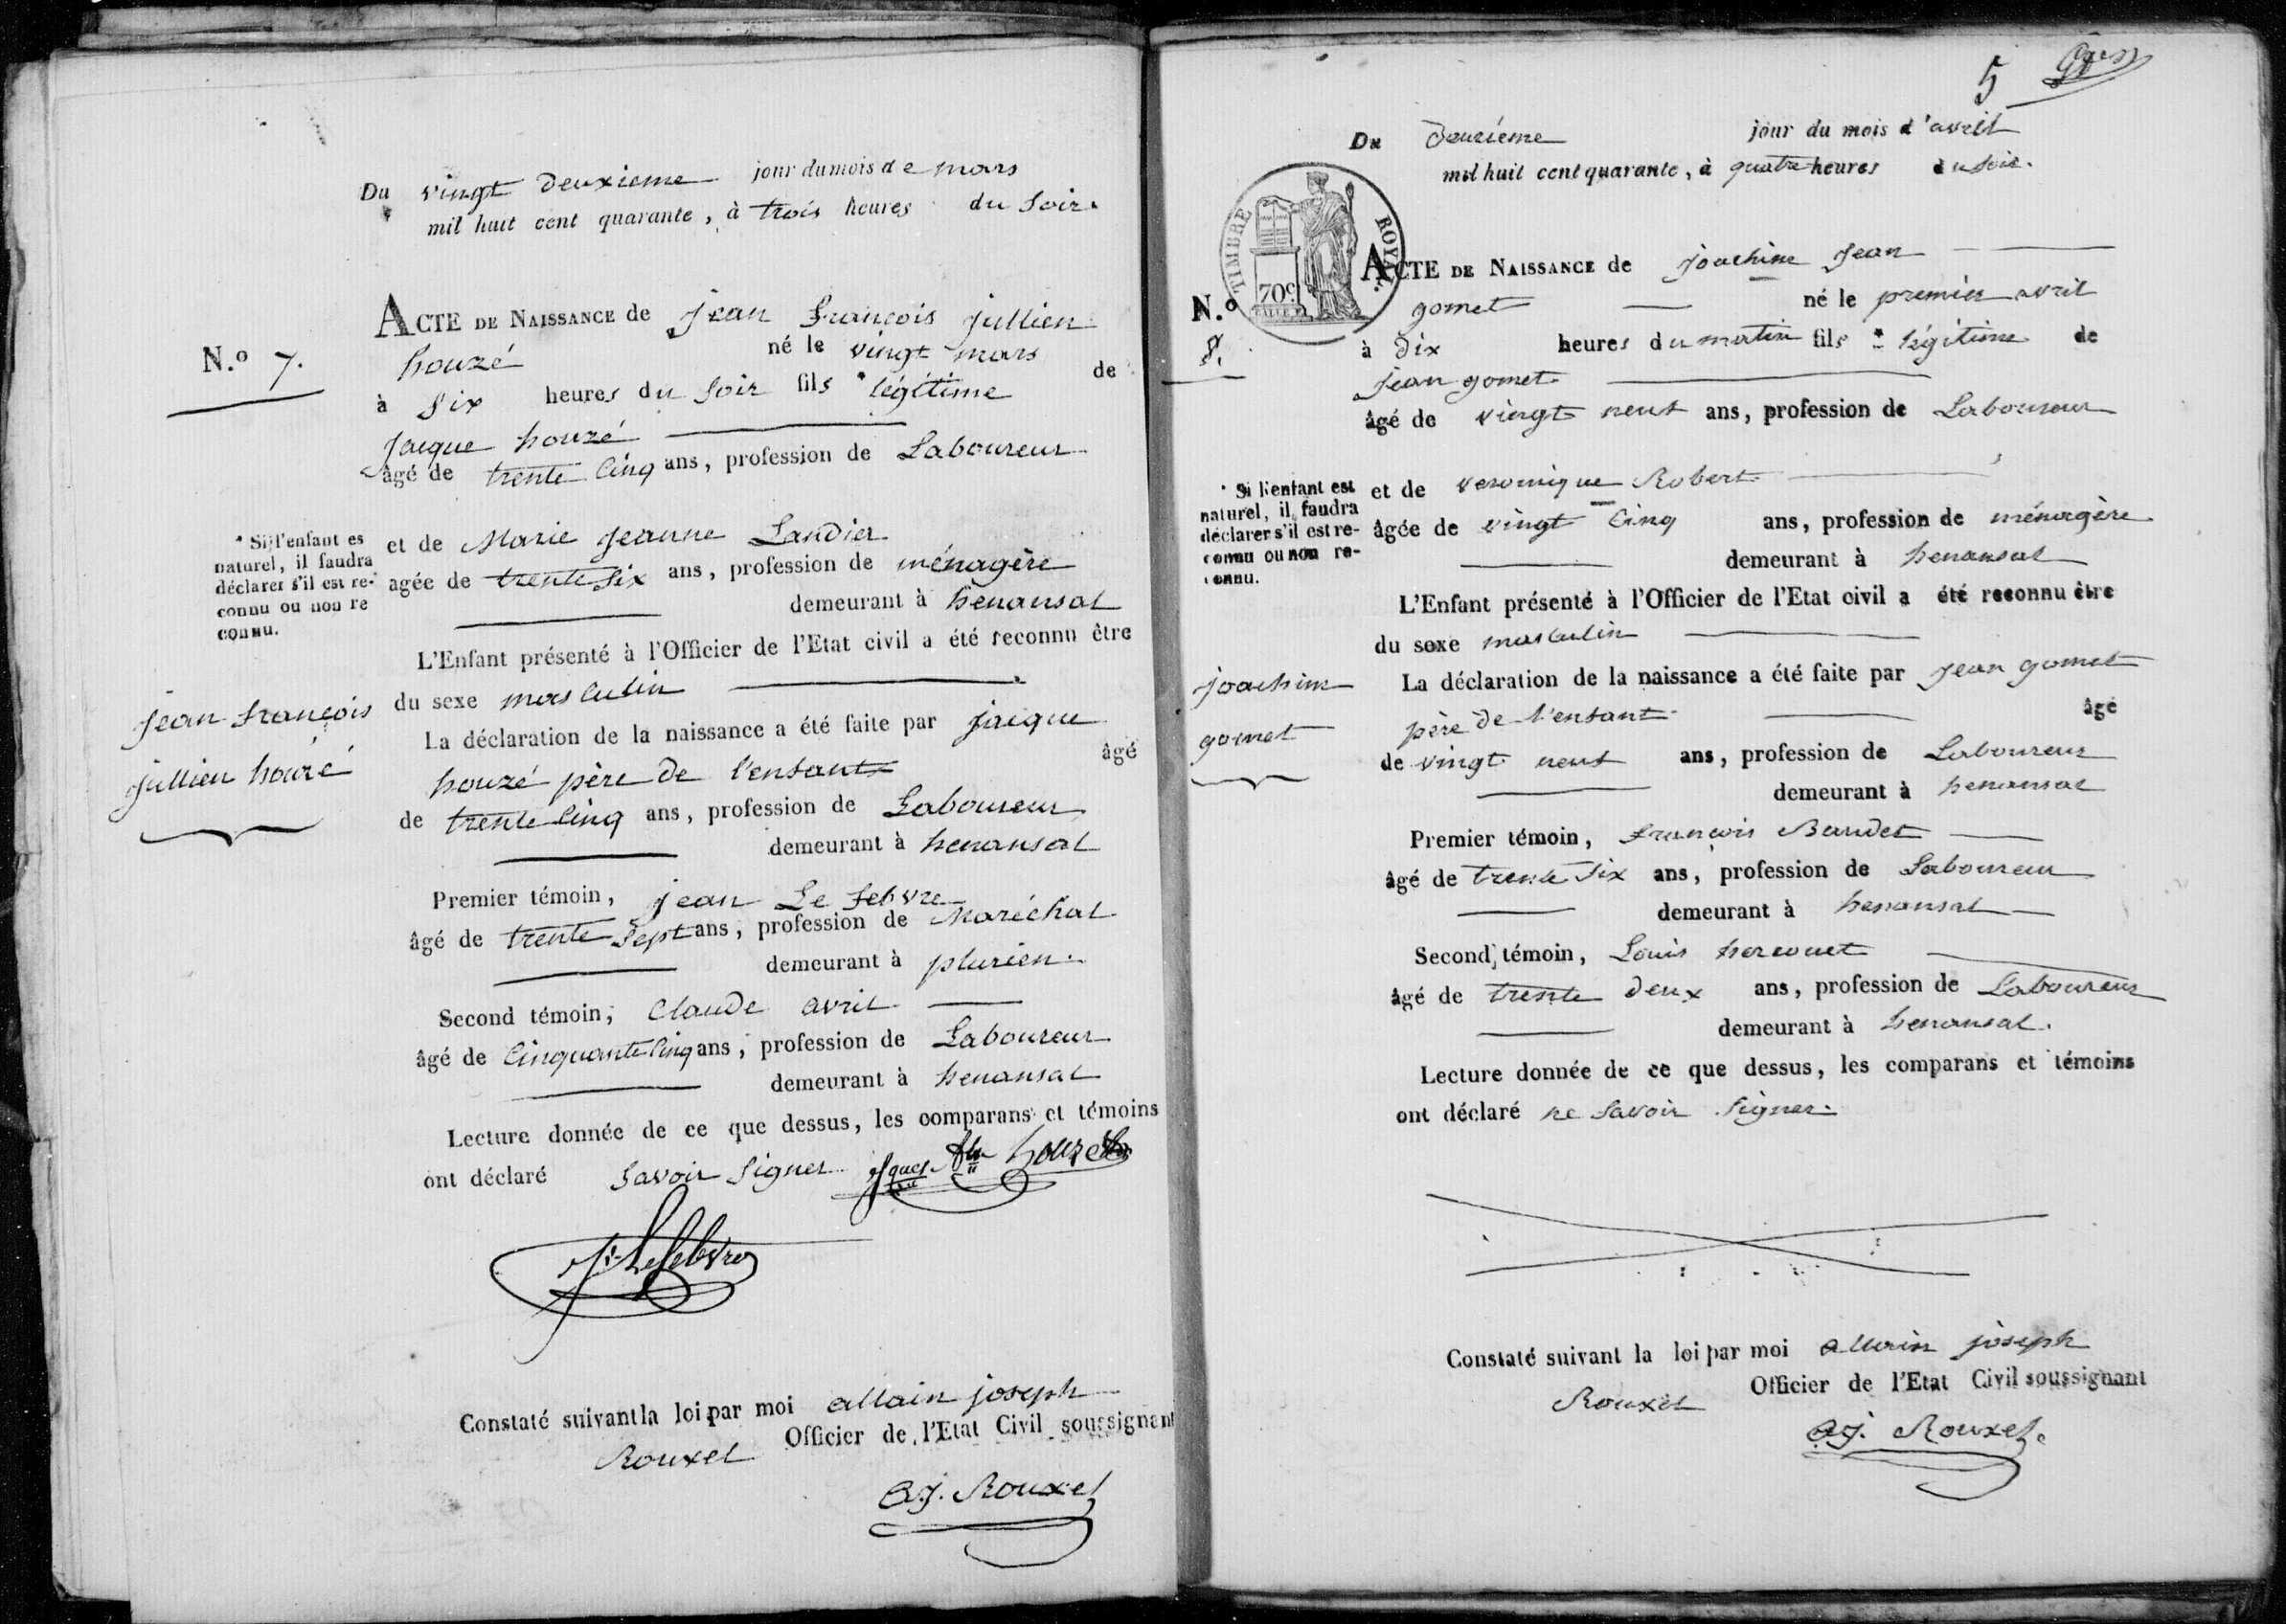 Du vingt deuxieme jour du mois de mars
mil huit cent quarante, à trois heures du soir.
ACTE DE NAISSANCE de jean françois jullien
N.º 7.
houzé né le vingt mars
à six heures du soir fils * légitime de
jacque houzé
âgé de trente cinq ans, profession de Laboureur
* Si l'enfant es
naturel, il faudra
déclarer s'il est re-
connu ou non re
connu.
et de Marie jeanne Landier
agée de trente six ans, profession de ménagère
demeurant à henansal
L'Enfant présenté à l'Officier de l'Etat civil a été reconnu être
du sexe masculin
jean françois
jullien houzé
La déclaration de la naissance a été faite par jacque
houzé père de l'enfant âgé
de trente cinq ans, profession de Laboureur
demeurant à henansal
Premier témoin, jean Le febvre
âgé de trente sept ans, profession de Maréchal
demeurant à plurien.
Second témoin, Claude avril
âgé de Cinquante cinq ans, profession de Laboureur
demeurant à henansal
Lecture donnée de ce que dessus, les comparans et témoins
ont déclaré savoir signer houzé
J. Lefebvre
Constaté suivant la loi par moi allain joseph
Rouxel Officier de l'Etat Civil soussignant
a.j. Rouxel
5
Du deuxiéme jour du mois d'avril
mil huit cent quarante, à quatre heures du soir.
TIMBRE ROYAL.
70c
ACTE DE NAISSANCE de joachim jean
N.º
8.
gomet né le premier avril
à dix heures du matin fils * légitime de
jean gomet
âgé de vingt neuf ans, profession de Laboureur
* Si l'enfant est
naturel, il faudra
déclarer s'il est re-
connu ou non re-
connu.
et de veronique Robert
âgée de vingt cinq ans, profession de ménagère
demeurant à henansal
L'Enfant présenté à l'Officier de l'Etat civil a été reconnu être
du sexe masculin
joachim
gomet
La déclaration de la naissance a été faite par jean gomet
père de l'enfant âgé
de vingt neuf ans, profession de Laboureur
demeurant à henansal
Premier témoin, françois Baudet
âgé de trente six ans, profession de Laboureur
demeurant à henansal
Second témoin, Louis hercouet
âgé de trente deux ans, profession de Laboureur
demeurant à henansal.
Lecture donnée de ce que dessus, les comparans et témoins
ont déclaré ne savoir signer.
Constaté suivant la loi par moi allain joseph
Rouxel Officier de l'Etat Civil soussignant
a.j. Rouxel.